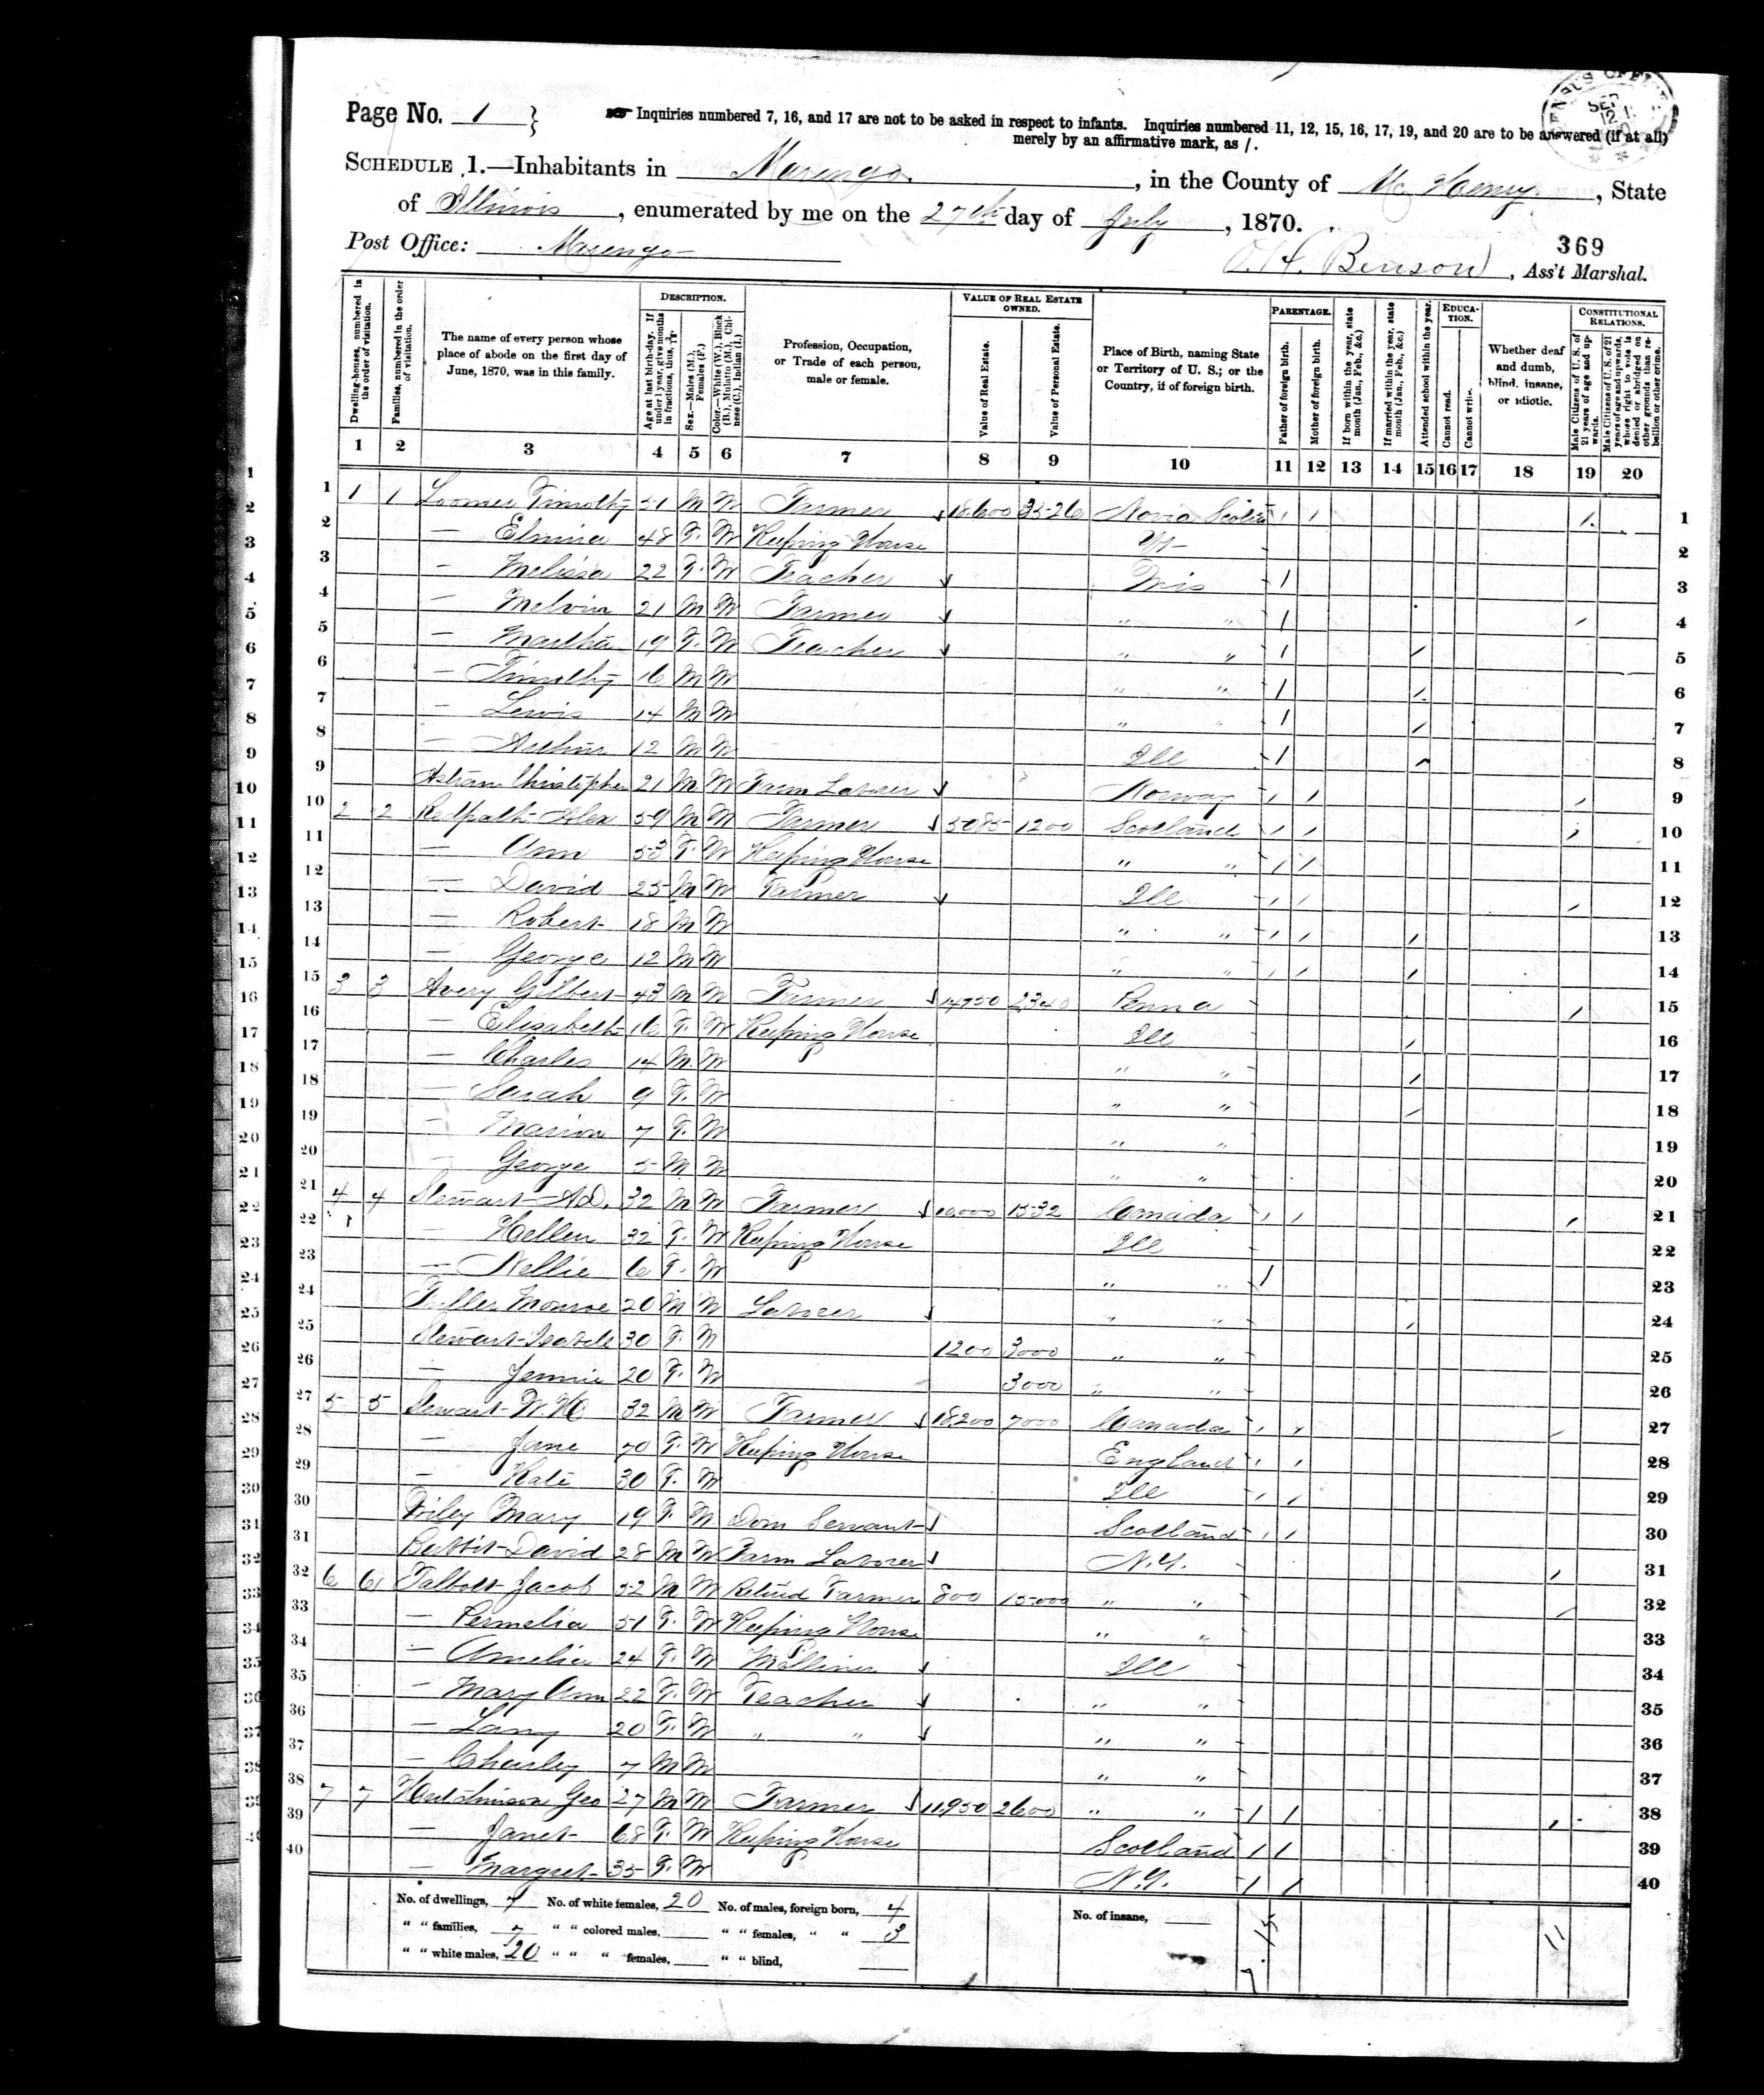 Page No. 1
Inquiries numbered 7, 16, and 17 are not to be asked in respect to infants. Inquiries numbered 11, 12, 15, 16, 17, 19, and 20 are to be answered (if at all)
merely by an affirmative mark, as /.
SCHEDULE 1.—Inhabitants in Marengo, in the County of Mc Henry, State
of Illinois, enumerated by me on the 27th day of July, 1870.
369
Post Office: Marengo
Benson, Ass't Marshal.
Dwelling-houses, numbered in the order of visitation.
Families, numbered in the order of visitation.
The name of every person whose place of abode on the first day of June, 1870, was in this family.
DESCRIPTION.
Age at last birth-day. If under 1 year, give months in fractions, thus, 3/12
Sex.—Males (M.), Females (F.)
Color.—White (W.), Black (B.), Mulatto (M.), Chinese (C.), Indian (I.)
Profession, Occupation, or Trade of each person, male or female.
VALUE OF REAL ESTATE OWNED.
Value of Real Estate.
Value of Personal Estate.
Place of Birth, naming State or Territory of U. S.; or the Country, if of foreign birth.
PARENTAGE.
Father of foreign birth.
Mother of foreign birth.
If born within the year, state month (Jan., Feb., &c.)
If married within the year, state month (Jan., Feb., &c.)
Attended school within the year.
EDUCATION.
Cannot read.
Cannot write.
Whether deaf and dumb, blind, insane, or idiotic.
CONSTITUTIONAL RELATIONS.
Male Citizens of U. S. of 21 years of age and upwards.
Male Citizens of U. S. of 21 years of age and upwards, whose right to vote is denied or abridged on other grounds than rebellion or other crime.
1 2 3 4 5 6 7 8 9 10 11 12 13 14 15 16 17 18 19 20
1 1 1 Loomer Timothy 51 M W Farmer 18600 3526 Nova Scotia / / / 1
2 — Elmina 48 F. W Keeping House Vt 2
3 — Melissa 22 F. W Teacher Wis / 3
4 — Melvin 21 M W Farmer " " / / 4
5 — Martha 19 F. W Teacher " " / / 5
6 — Timothy 16 M W " " / / 6
7 — Lewis 14 M W " " / / 7
8 — Arthur 12 M W Ill / / 8
9 Christopher 21 M W Farm Laborer Norway / / / 9
10 2 2 Redpath Alex 59 M W Farmer 5085 1200 Scotland / / / 10
11 — Ann 53 F. W Keeping House " " / / 11
12 — David 25 M W Farmer Ill / / / 12
13 — Robert 18 M W " " / / / 13
14 — George 12 M W " " / / / 14
15 3 3 Avery Gilbert 43 M W Farmer 14750 2340 Penna / 15
16 — Elisabeth 16 F. W Keeping House Ill / 16
17 — Charles 14 M. W " " / 17
18 — Sarah 9 F. W " " / 18
19 — Marion 7 F. W " " 19
20 — George 5 M W " " 20
21 4 4 Stewart A D. 32 M W Farmer 10000 1532 Canada / / / 21
22 — Hellen 32 F. W Keeping House Ill 22
23 — Nellie 6 F. W " " / 23
24 Fuller Monroe 20 M W Laborer " " / 24
25 Stewart Isabele 30 F. W 1200 3000 " " 25
26 — Jennie 20 F. W 3000 " " 26
27 5 5 Stewart W. H 32 M W Farmer 18200 7000 Canada / / / 27
28 — Jane 70 F. W Keeping House England / / 28
29 — Kate 30 F. W Ill / / 29
30 Mary 19 F. W Dom Servant Scotland / / 30
31 David 28 M W Farm Laborer N.Y. / 31
32 6 6 Talbott Jacob 52 M W Retired Farmer 800 15000 " " / 32
33 — Permelia 51 F. W Keeping House " " 33
34 — Amelia 24 F. W Milliner Ill 34
35 — Mary Ann 22 F. W Teacher " " 35
36 — 20 F. W " " " " 36
37 — Charley 7 M W " " 37
38 7 7 Hutchinson Geo 27 M W Farmer 11950 2600 " " / / / 38
39 — Janet 68 F. W Keeping House Scotland / / 39
40 — Margret 35 F. W N.Y. / / 40
No. of dwellings, 7 No. of white females, 20 No. of males, foreign born, 4 No. of insane,
" " families, 7 " " colored males, " " females, " " 3
" " white males, 20 " " " females, " " blind,
11